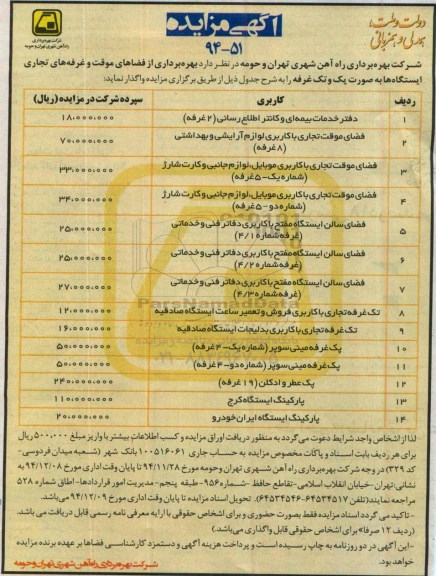 دولت و ملت،
همدلی و همزبانی
آگهی مزایده
۹۴-۵۱
شرکت بهره برداری
راه آهن شهری تهران و حومه
شرکت بهره برداری راه آهن شهری تهران و حومه در نظر دارد بهره برداری از فضاهای موقت و غرفه های تجاری
ایستگاه ها به صورت پک و تک غرفه را به شرح جدول ذیل از طریق برگزاری مزایده واگذار نماید:
ردیف کاربری سپرده شرکت در مزایده (ریال)
۱ دفتر خدمات بیمه ای و کانتر اطلاع رسانی (۲ غرفه) ۱۸،۰۰۰،۰۰۰
۲ فضای موقت تجاری با کاربری لوازم آرایشی و بهداشتی (۸ غرفه) ۷۰،۰۰۰،۰۰۰
۳ فضای موقت تجاری با کاربری موبایل، لوازم جانبی و کارت شارژ (شماره یک-۵ غرفه) ۳۳،۰۰۰،۰۰۰
۴ فضای موقت تجاری با کاربری موبایل، لوازم جانبی و کارت شارژ (شماره دو-۵ غرفه) ۳۴،۰۰۰،۰۰۰
۵ فضای سالن ایستگاه مفتح با کاربری دفاتر فنی و خدماتی (غرفه شماره ۴/۱) ۲۵،۰۰۰،۰۰۰
۶ فضای سالن ایستگاه مفتح با کاربری دفاتر فنی و خدماتی (غرفه شماره ۴/۲) ۲۵،۰۰۰،۰۰۰
۷ فضای سالن ایستگاه مفتح با کاربری دفاتر فنی و خدماتی (غرفه شماره ۴/۳) ۲۷،۰۰۰،۰۰۰
۸ تک غرفه تجاری با کاربری فروش و تعمیر ساعت ایستگاه صادقیه ۱۲،۰۰۰،۰۰۰
۹ تک غرفه تجاری با کاربری بدلیجات ایستگاه صادقیه ۱۶،۰۰۰،۰۰۰
۱۰ پک غرفه مینی سوپر (شماره یک-۴ غرفه) ۵۰،۰۰۰،۰۰۰
۱۱ پک غرفه مینی سوپر (شماره دو-۴ غرفه) ۵۰،۰۰۰،۰۰۰
۱۲ پک عطر و ادکلن (۱۹ غرفه) ۲۴۰،۰۰۰،۰۰۰
۱۳ پارکینگ ایستگاه کرج ۱۱۰،۰۰۰،۰۰۰
۱۴ پارکینگ ایستگاه ایران خودرو ۲۰،۰۰۰،۰۰۰
ParsNamadData
لذا از اشخاص واجد شرایط دعوت می گردد به منظور دریافت اوراق مزایده و کسب اطلاعات بیشتر با واریز مبلغ ۵۰۰،۰۰۰ ریال
برای هر ردیف بابت اسناد و پاکات مخصوص مزایده به حساب جاری ۱۰۰۵۱۶۰۶۱ بانک شهر (شعبه میدان فردوسی-
کد ۳۲۹) در وجه شرکت بهره برداری راه آهن شهری تهران و حومه مورخ ۹۴/۱۱/۲۸ تا پایان وقت اداری مورخ ۹۴/۱۲/۰۸ به
نشانی تهران-خیابان انقلاب اسلامی-تقاطع حافظ-شماره ۹۵۶-طبقه پنجم-مدیریت امور قراردادها-اطاق شماره ۵۲۸
مراجعه نمایند (تلفن ۶۴۵۳۴۵۱۷-۶۴۵۳۴۵۴۶). تحویل اسناد مزایده تا پایان وقت اداری مورخ ۹۴/۱۲/۰۹ می باشد.
-تاکید می گردد اسناد مزایده فقط بصورت حضوری و برای اشخاص حقوقی با ارایه معرفی نامه رسمی قابل دریافت می باشد.
(ردیف ۱۲ صرفا» برای اشخاص حقوقی قابل واگذاری می باشد.)
-این آگهی در دو روزنامه به چاپ رسیده است و پرداخت هزینه آگهی و دستمزد کارشناسی فضاها بر عهده برنده مزایده
خواهد بود.
شرکت بهره برداری راه آهن شهری تهران و حومه